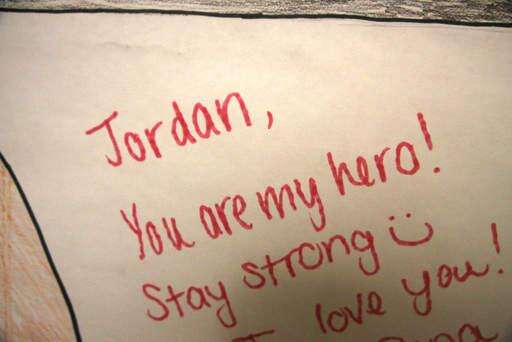 Jordan,
You are my hero!
Stay strong
I love you!